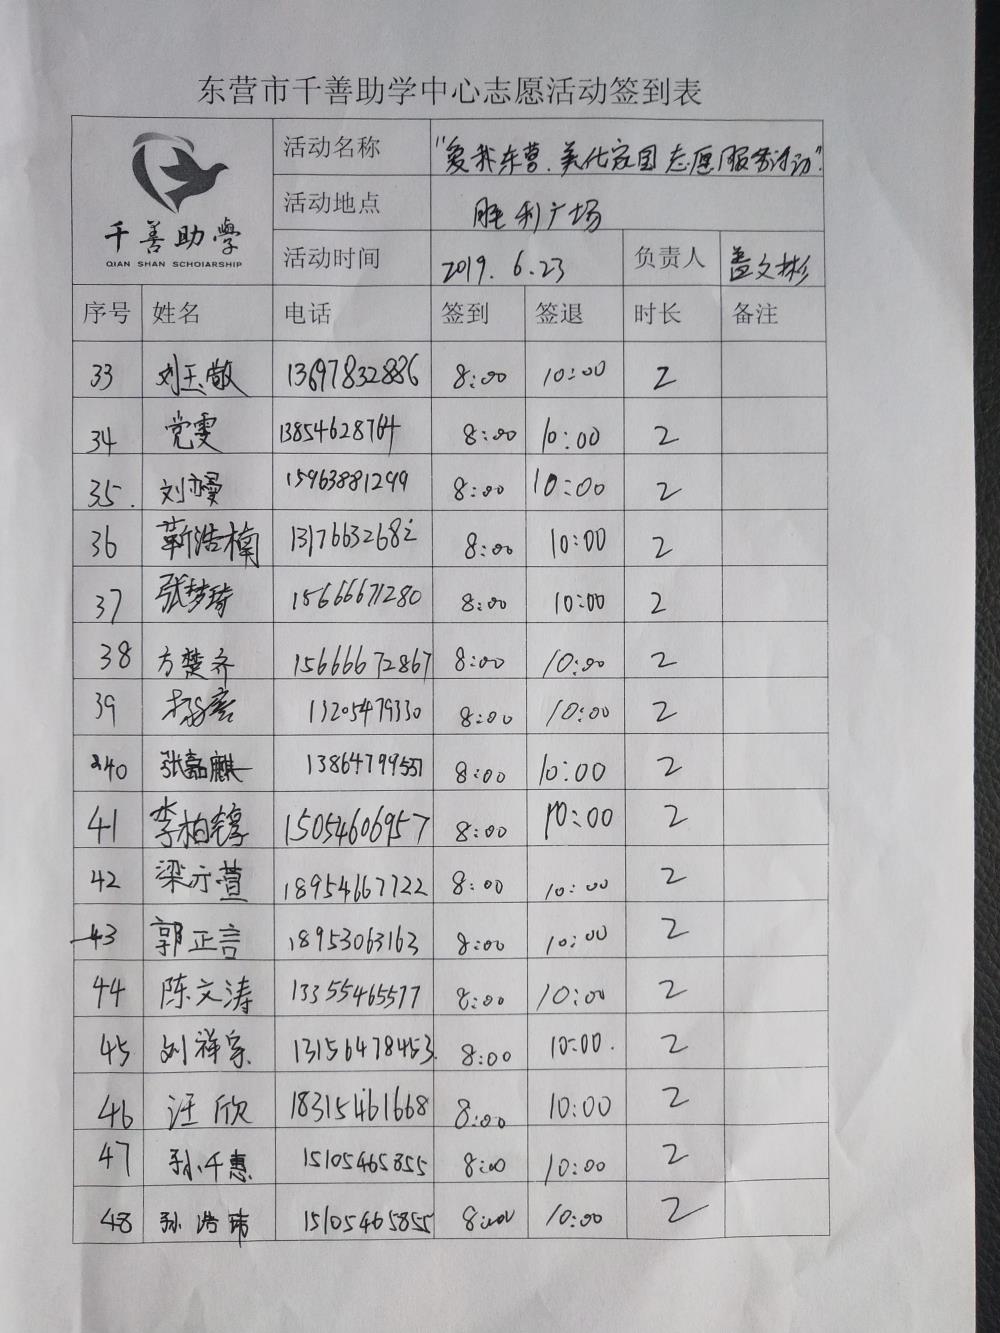 东营市千善助学中心志愿活动签到表
千善助學
QIAN SHAN SCHOIARSHIP
活动名称 "爱我东营、美化家园志愿服务活动"
活动地点 胜利广场
活动时间 2019.6.23 负责人 盖文彬
序号 姓名 电话 签到 签退 时长 备注
33 刘玉敬 13697832886 8:00 10:00 2
34 党雯 13854628764 8:00 10:00 2
35. 刘亦曼 15963881299 8:00 10:00 2
36 靳浩楠 1317663268 8:00 10:00 2
37 张梦琦 15666671280 8:00 10:00 2
38 方楚齐 15666672867 8:00 10:00 2
39 13205479330 8:00 10:00 2
40 张嘉麒 13864799557 8:00 10:00 2
41 李柏锌 15054606957 8:00 10:00 2
42 梁亓萱 18954667722 8:00 10:00 2
43 郭正言 18953063163 8:00 10:00 2
44 陈文涛 13355465577 8:00 10:00 2
45 刘祥宗 13156478453 8:00 10:00. 2
46 汪欣 18315461668 8:00 10:00 2
47 孙千惠 15105465855 8:00 10:00 2
48 孙浩玮 15105465855 8:00 10:00 2